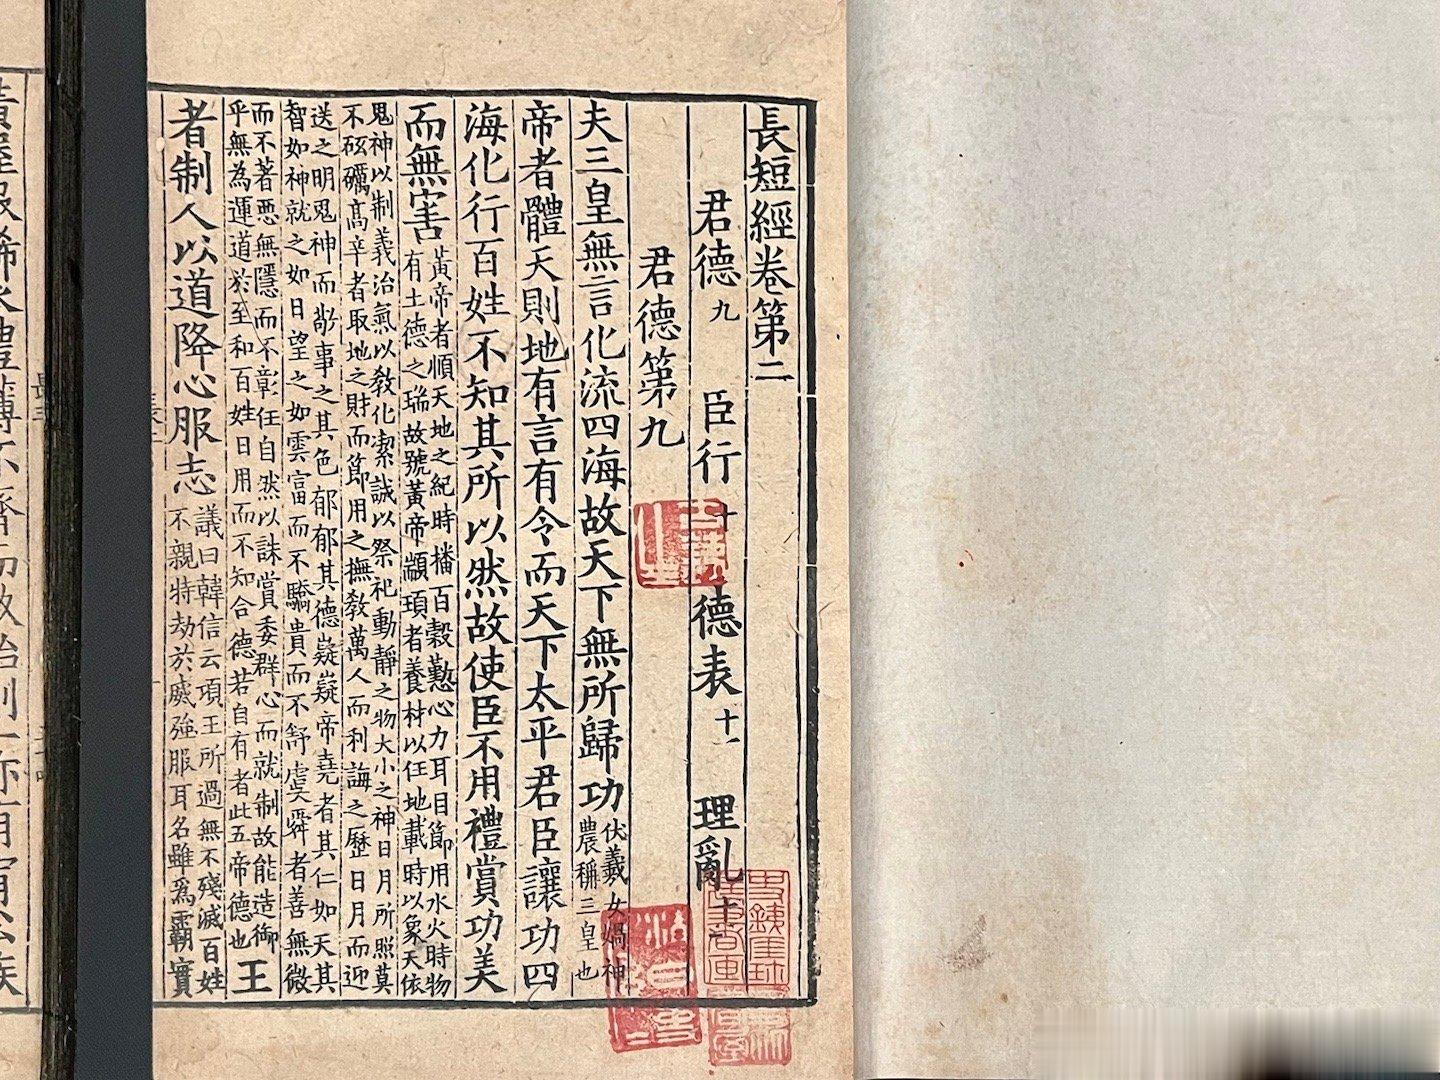 長短經卷第二
君德九 臣行十 德表十一 理亂十二
君德第九
夫三皇無言化流四海故天下無所歸功伏羲女媧神
農稱三皇也
帝者體天則地有言有令而天下太平君臣讓功四
海化行百姓不知其所以然故使臣不用禮賞功美
而無害黃帝者順天地之紀時播百穀勤心力耳目節用水火時物
有土德之瑞故號黃帝顓頊者養材以任地載時以象天依
鬼神以制義治氣以教化潔誠以祭祀動靜之物大小之神日月所照莫
不砥礪高辛者取地之財而節用之撫教萬人而利誨之歷日月而迎
送之明鬼神而敬事之其色郁郁其德嶷嶷帝堯者其仁如天其
智如神就之如日望之如雲富而不驕貴而不舒虞舜者善無微
而不著惡無隱而不彰任自然以誅賞委群心而就制故能造御
乎無為運道於至和百姓日用而不知合德若自有者此五帝德也王
者制人以道降心服志議曰韓信云項王所過無不殘滅百姓
不親特劫於威强服耳名雖為霸實